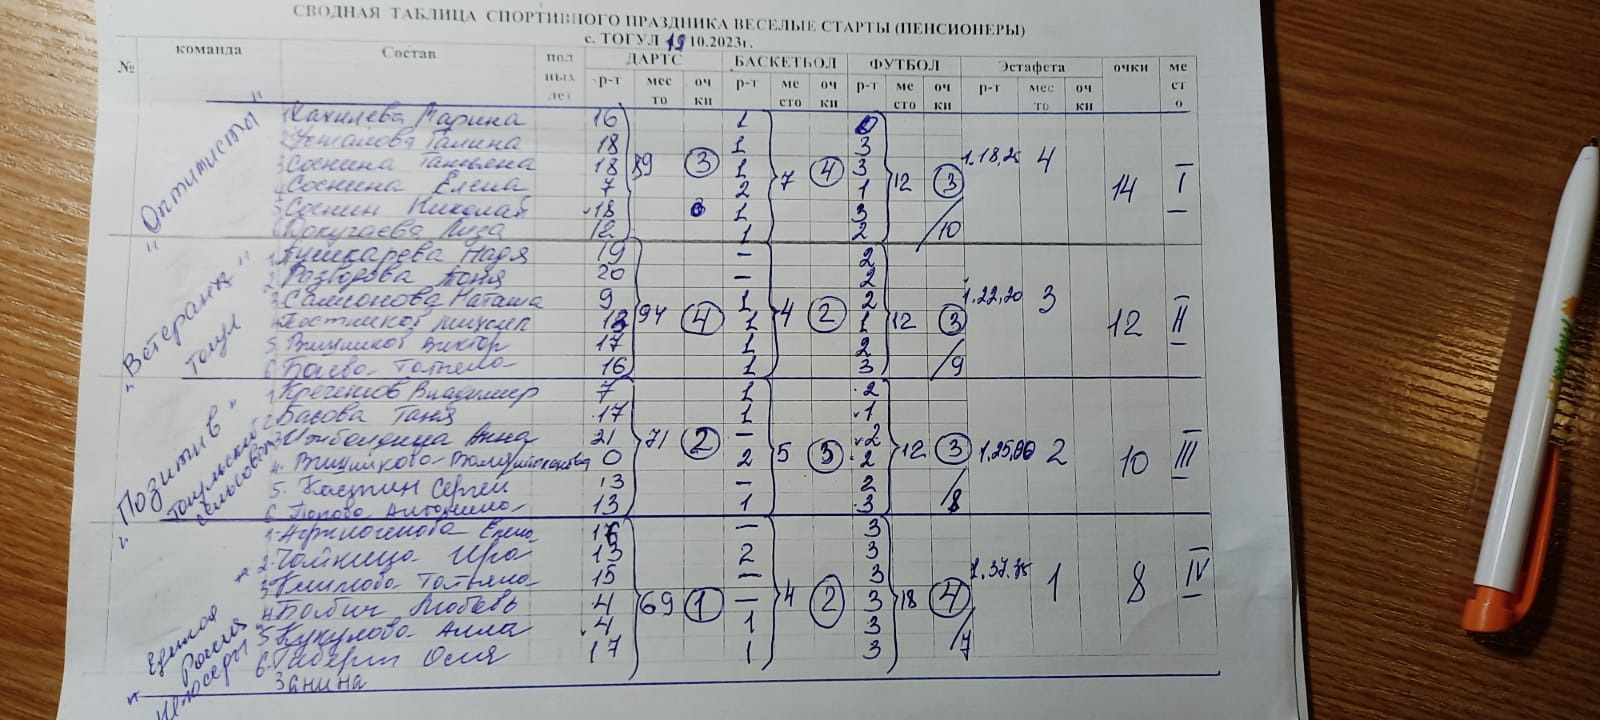 СВОДНАЯ ТАБЛИЦА СПОРТИВНОГО ПРАЗДНИКА ВЕСЕЛЫЕ СТАРТЫ (ПЕНСИОНЕРЫ)
с. ТОГУЛ 19 10.2023г.
№ команда Состав пол ных лет ДАРТС БАСКЕТБОЛ ФУТБОЛ Эстафета очки ме ст о
р-т мес то оч ки р-т ме сто оч ки р-т ме сто оч ки р-т мес то оч ки
"Оптимисты"
Марина 16 1
2 Галина 18 1 3
3 Соснина Татьяна 18 89 3 1 7 4 3 12 3 1.18,25 4 14 I
4 Соснина Елена 7 2 1
5 Соснин Николай 18 1 3
6 Лиза 12 1 2 10
"Ветераны" Тогул
1 Пушкарева Надя 19 – 2
2 Разгорова Тоня 20 – 2
3 Самсонова Наташа 9 94 4 1 4 2 2 12 3 1.22,20 3 12 II
4 13 1 1
5 Виктор 17 1 2
6 Баева Татьяна 16 1 3 9
"Позитив" Тогульский сельсовет
1 Владимир 7 1 2
2 Басова Таня 17 1 1
3 Анна 21 71 2 – 5 3 2 12 3 1.25,00 2 10 III
4. Вишнякова 0 2 2
5. Сергей 13 – 2
6 Попова Антонина 13 1 3 8
"Единая Россия"
1 Елена 16 – 3
2 Ира 13 2 3
3 Татьяна 15 – 3
4 Бабич Любовь 4 69 1 – 4 2 3 18 4 1.37.75 1 8 IV
5 Кукулова Алла 4 1 3
6 Юлия 17 1 3 7
Занина